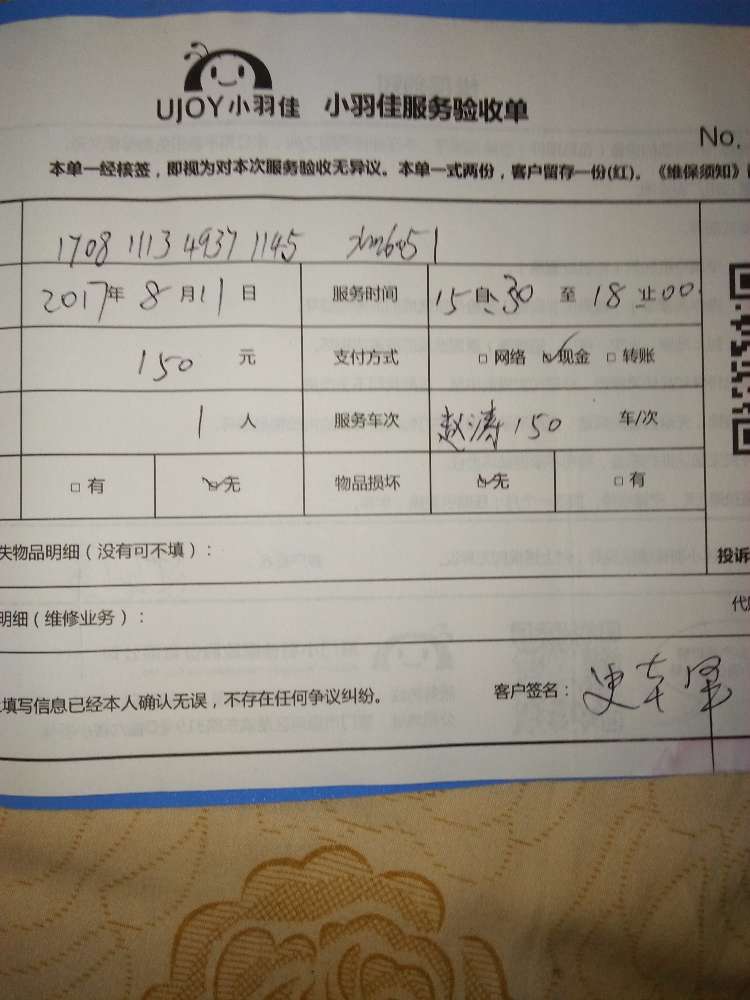 UJOY小羽佳 小羽佳服务验收单
No.
本单一经核签，即视为对本次服务验收无异议。本单一式两份，客户留存一份(红)。《维保须知》
1708 1113 4937 1145
2017年 8月11日 服务时间 15自:30 至 18止00
150 元 支付方式 □ 网络 ☑ 现金 □ 转账
1 人 服务车次 赵涛150 车/次
□ 有 ☑ 无 物品损坏 ☑ 无 □ 有
失物品明细（没有可不填）：
投诉
明细（维修业务）：
填写信息已经本人确认无误，不存在任何争议纠纷。 客户签名：